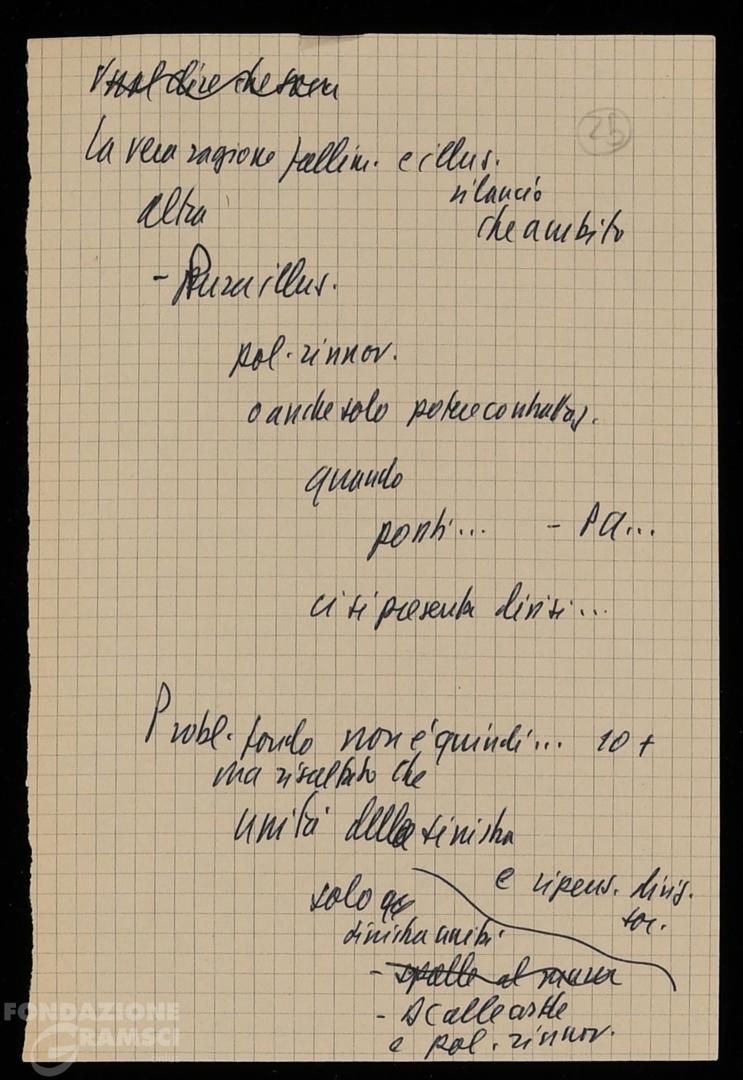 Vuol dire che
25
La vera ragione fallim. e illus.
rilancio
altra
che ambito
- Pura illus.
pol. rinnov.
o anche solo potere contrattaz.
quando
ponti... - PCI...
ci si presenta divisi...
Probl. fondo non è quindi... 10 +
ma risultato che
unità della sinistra
e ripens. divis.
solo
soc.
sinistra unita
- spalle al muro
-
e pol. rinnov.
FONDAZIONE
GRAMSCI